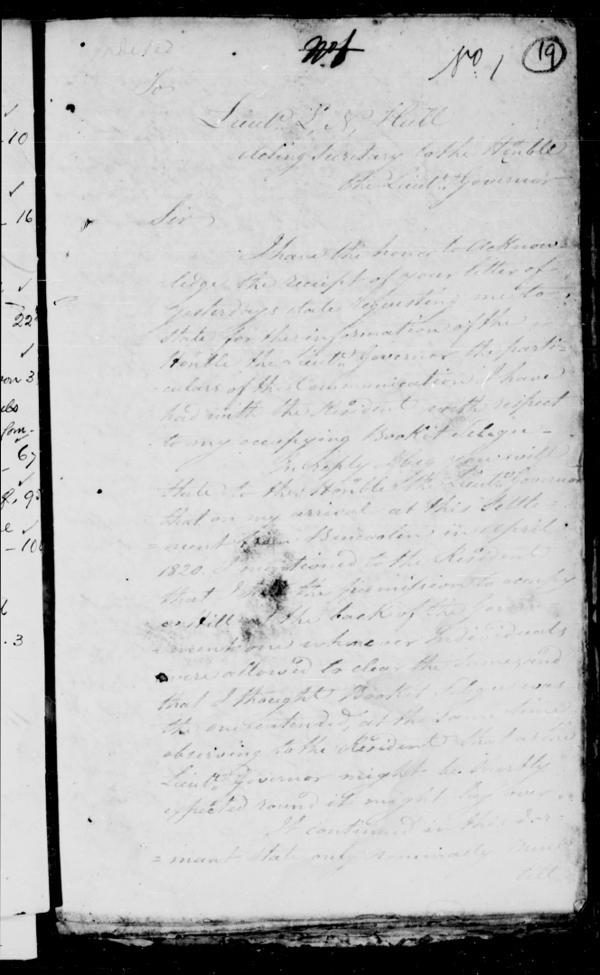 No. 1
19
To
Lieut. L. N. Hull
Acting Secretary to the Honble
the Lieut. Governor
Sir
I have the honor to Acknow-
ledge the receipt of your letter of
Yesterdays date requesting me to
state for the information of the
Honble the Lieut. Governor the parti-
culars of the Communication I have
had with the Resident with respect
to my occupying Bookit Selegu -
In reply I beg you will
State to the Honble the Lieut. Governor
that on my arrival at this Settle-
=ment from Bencoolen in April
1820. I mentioned to the Resident
that I had the permission to occupy
a Hill at the back of the Govern-
=ment one whenever Individuals
were allowed to clear the same, and
that I thought Bookit Selegu was
the one intended, at the same time
observing to the Resident that as the
Lieut. Governor might be shortly
expected round it might lay over
It continued in this dor-
=mant state only nominally mine
till
10
16
22
3
67
9
10
3